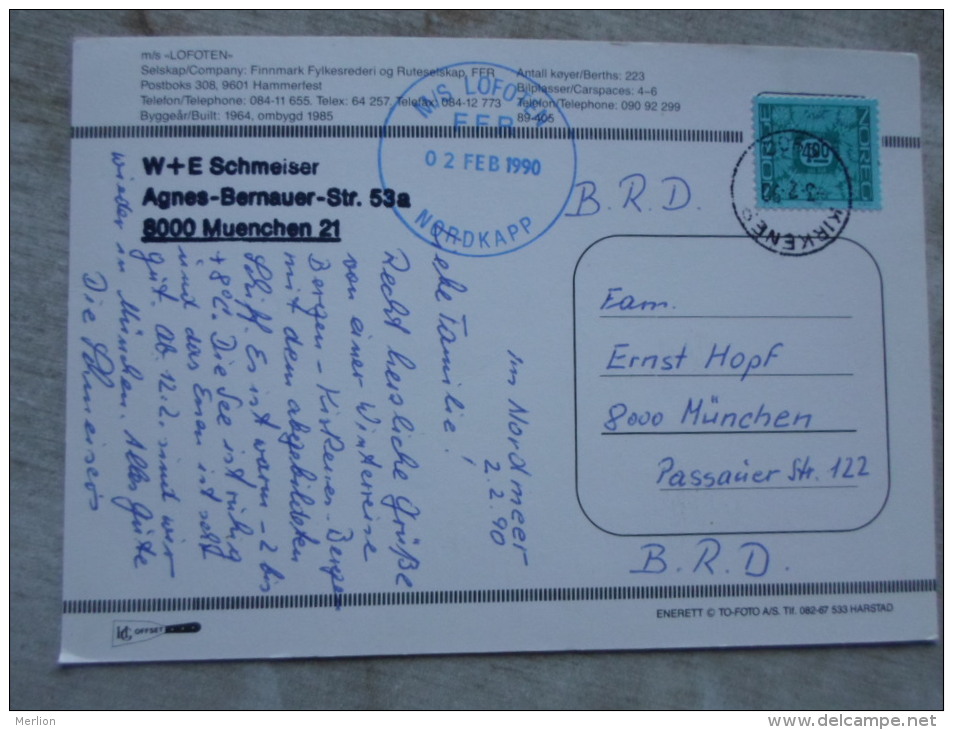 m/s «LOFOTEN»
Selskap/Company: Finnmark Fylkesrederi og Ruteselskap, FFR
Postboks 308, 9601 Hammerfest
Telefon/Telephone: 084-11 655. Telex: 64 257. Telefax: 084-12 773
Byggeår/Built: 1964, ombygd 1985
Antall køyer/Berths: 223
Bilplasser/Carspaces: 4-6
Telefon/Telephone: 090 92 299
89-405
M/S LOFOTEN
FFR
02 FEB 1990
NORDKAPP
NOREG
400
KIRKENES
W+E Schmeiser
Agnes-Bernauer-Str. 53a
8000 Muenchen 21
B.R.D.
Im Nordmeer
2.2.90
Familie!
Recht herzliche Grüße
von einer Winterreise
Bergen-Kirkenes-Bergen
mit dem abgebildeten
Schiff. Es ist warm -2 bis
+8°C. Die See ist ruhig
und das Essen ist sehr
gut. Ab 12.2. sind wir
wieder in München. Alles Gute
Die Schmeisers
Fam.
Ernst Hopf
8000 München
Passauer Str. 122
B.R.D.
ENERETT © TO-FOTO A/S. Tlf. 082-67 533 HARSTAD
OFFSET
Merlion
www.delcampe.net